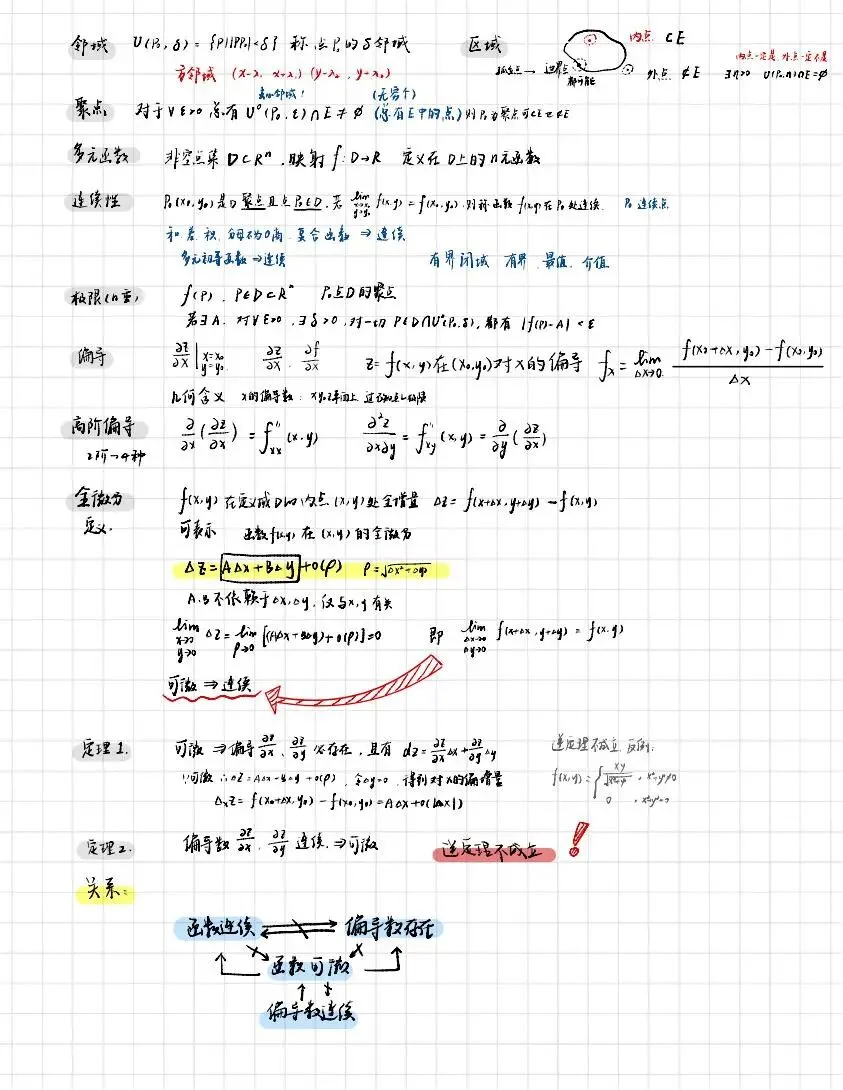 邻域 U(P₀, δ) = {P||PP₀|<δ} 称点P₀的δ邻域 区域 内点 ⊂E
方邻域
孤立点 → 边界点 都可能 外点 ∉E
内点一定是,外点一定不是
∃η>0 U(P₀,η)∩E=∅
去心邻域! (无穷个)
聚点: 对于∀ε>0 总有 U°(P₀,ε)∩E≠∅ (总有E中的点) 则P₀为聚点可∈E或∉E
多元函数 非空点集 D⊂Rⁿ,映射 f:D→R 定义在D上的n元函数
连续性 P₀(x₀,y₀)是D聚点且点P₀∈D,若 lim x→x₀ y→y₀ f(x,y) = f(x₀,y₀),则称函数 f(x,y)在P₀处连续. P₀ 连续点
和差、积、分母不为0商、复合函数 ⇒ 连续
多元初等函数⇒连续 有界闭域 有界、最值、介值
极限(n重) f(P), P∈D⊂Rⁿ P₀点D的聚点
若∃A, 对∀ε>0,∃δ>0,对一切 P∈D∩U°(P₀,δ),都有 |f(P)-A|<ε
偏导 ∂z/∂x | x=x₀ y=y₀ ∂z/∂x, ∂f/∂x z=f(x,y)在(x₀,y₀)对x的偏导 fₓ = lim Δx→0 (f(x₀+Δx,y₀)-f(x₀,y₀))/Δx
几何含义 x的偏导数:
高阶偏导 ∂/∂x(∂z/∂x) = f''ₓₓ(x,y) ∂²z/∂x∂y = f''xy(x,y) = ∂/∂y(∂z/∂x)
2阶→4种
全微分 f(x,y)在定义域D的内点(x,y)处全增量 Δz=f(x+Δx,y+Δy)-f(x,y)
定义. 可表示 函数f(x,y)在(x,y)的全微分
Δz=AΔx+BΔy+o(ρ)
A.B不依赖于Δx,Δy,仅与x,y有关
lim x→0 y→0 Δz = lim ρ→0 [(AΔx+BΔy)+o(ρ)]=0 即 lim Δx→0 Δy→0 f(x+Δx,y+Δy)=f(x,y)
可微 ⇒ 连续
定理1. 可微 ⇒偏导 ∂z/∂x, ∂z/∂y 必存在,且有 dz=∂z/∂x Δx+∂z/∂y Δy
∵可微 ∴Δz=AΔx+BΔy+o(ρ),令Δy=0,得到对x的偏增量
Δₓz=f(x₀+Δx,y₀)-f(x₀,y₀)=AΔx+o(|Δx|)
逆定理不成立,反例:
f(x,y)={
0
定理2. 偏导数 ∂z/∂x, ∂z/∂y 连续 ⇒可微 逆定理不成立 !
关系:
函数连续 偏导数存在
函数可微
偏导数连续